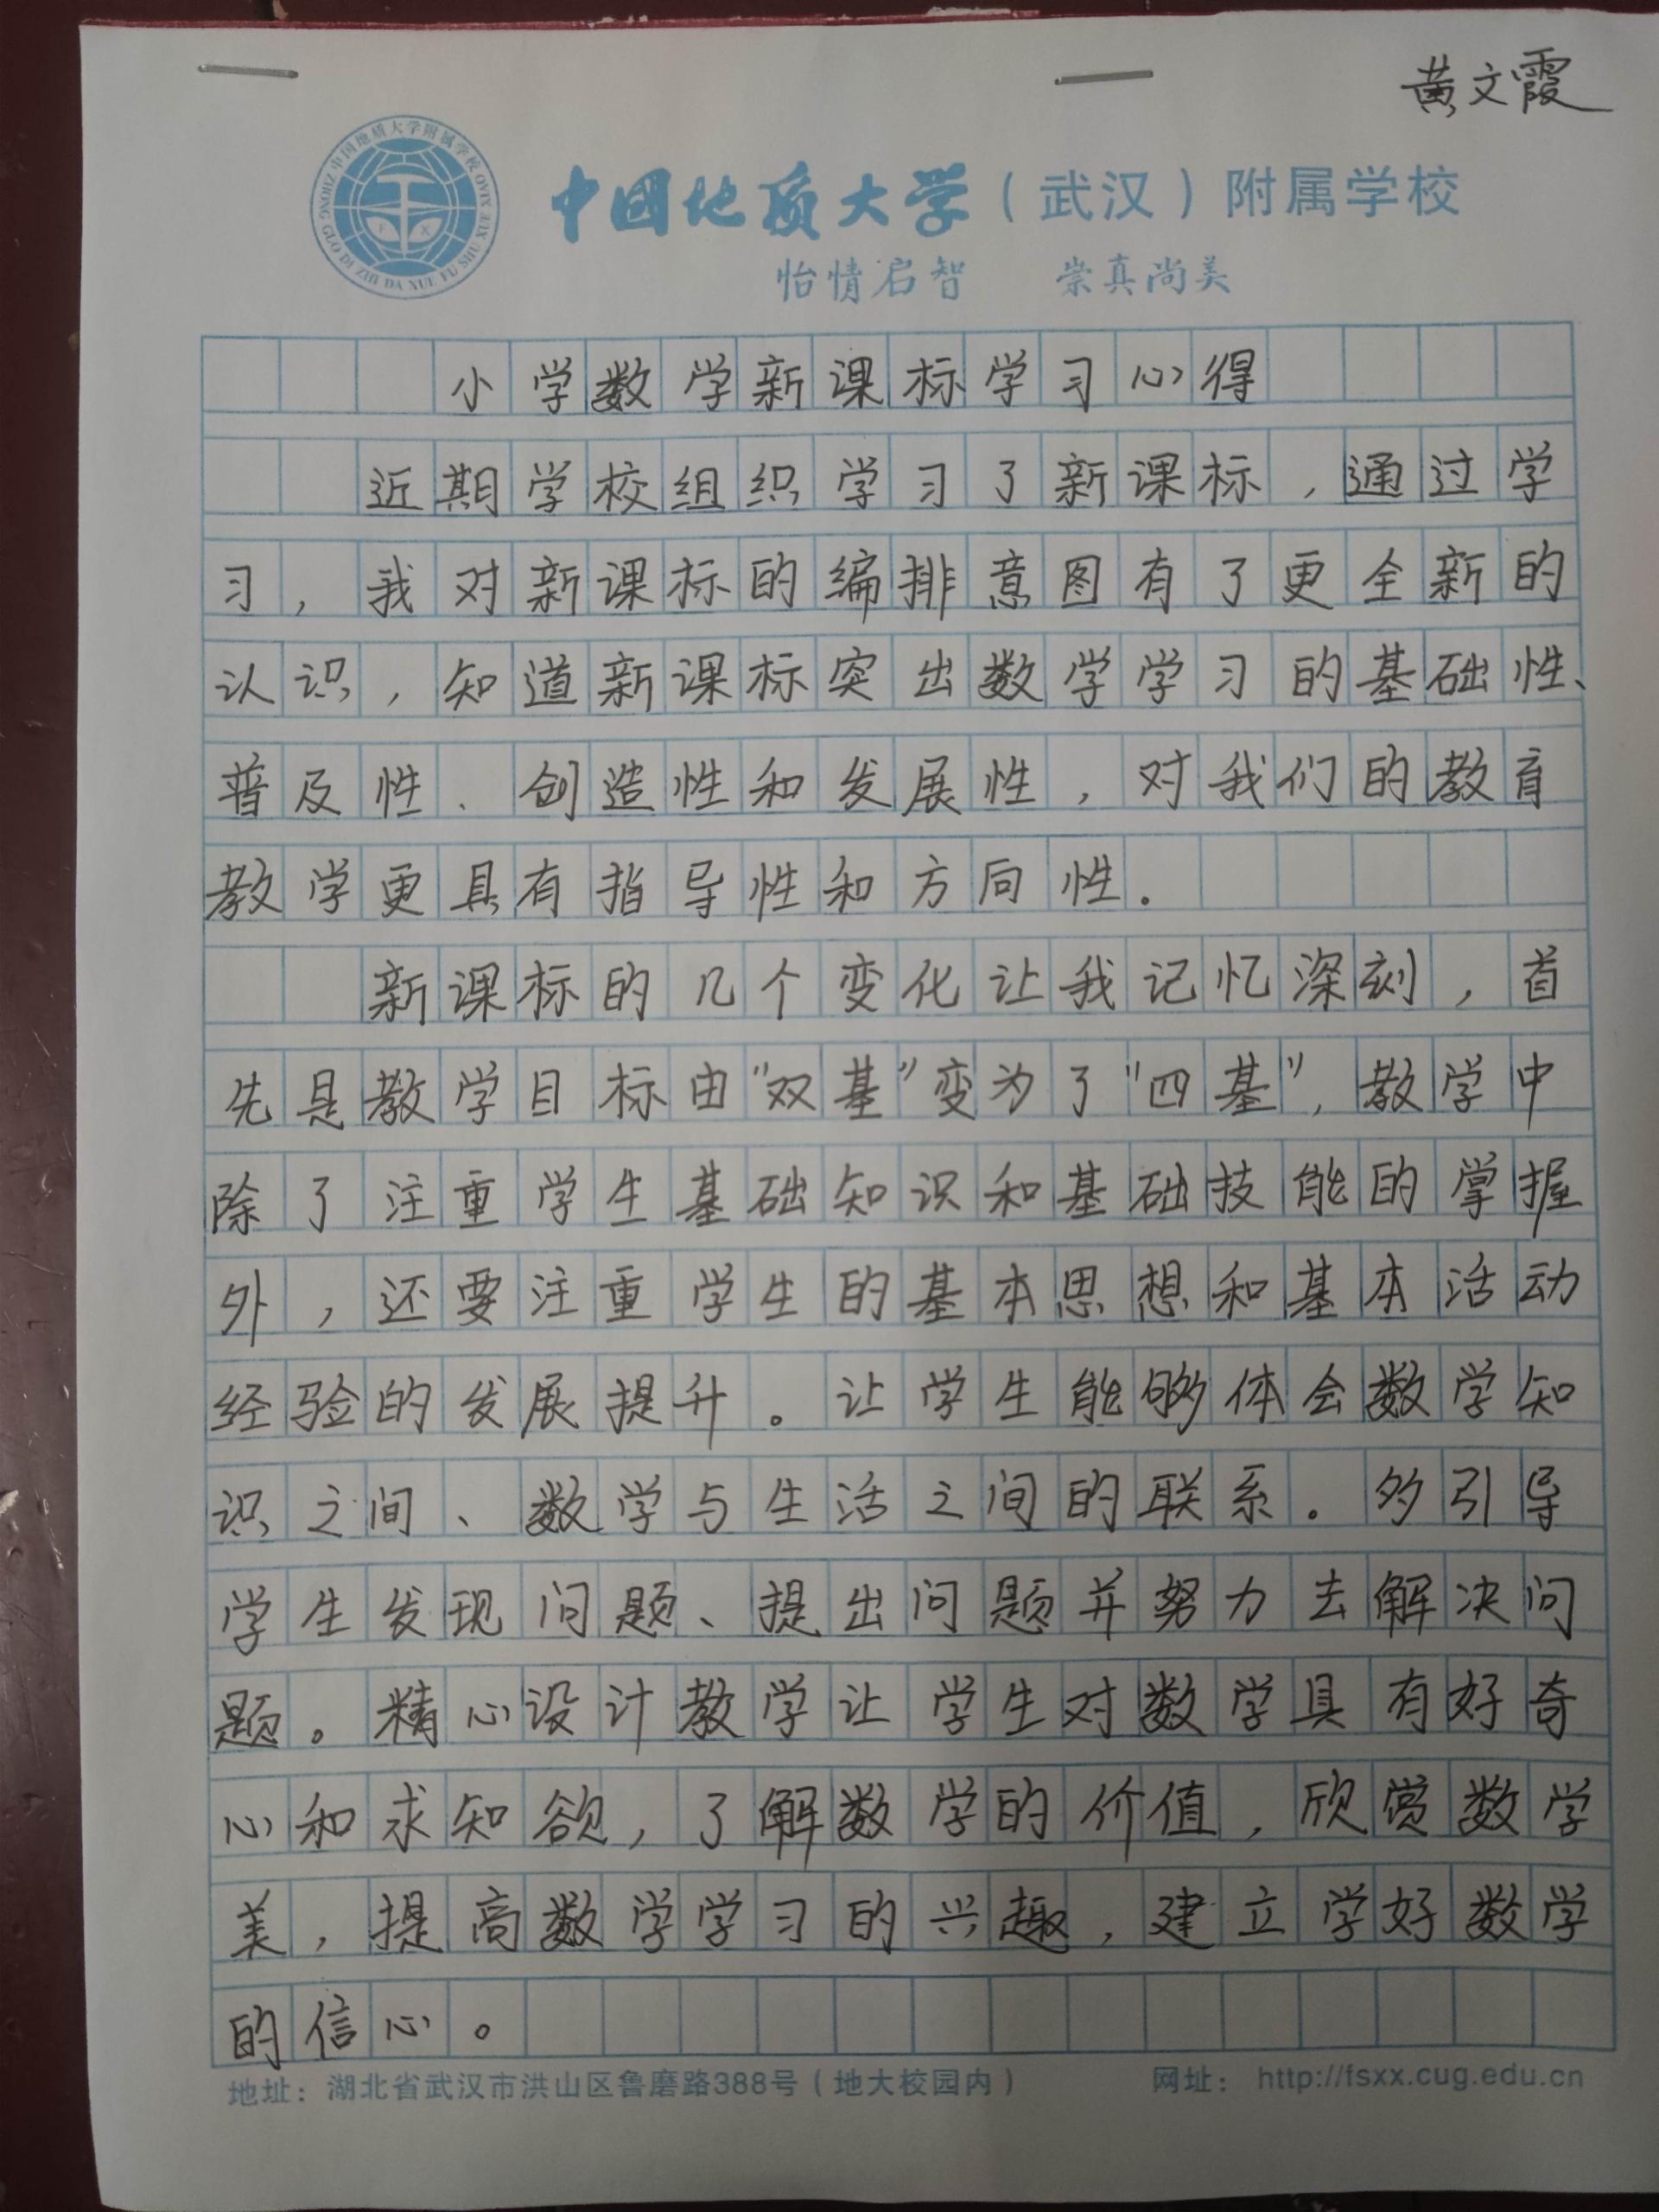 黄文霞
中国地质大学附属学校
ZHONG GUO DI ZHI DA XUE FU SHU XUE XIAO
F X
中国地质大学（武汉）附属学校
怡情启智 崇真尚美
小学数学新课标学习心得
近期学校组织学习了新课标，通过学
习，我对新课标的编排意图有了更全新的
认识，知道新课标突出数学学习的基础性、
普及性、创造性和发展性，对我们的教育
教学更具有指导性和方向性。
新课标的几个变化让我记忆深刻，首
先是教学目标由“双基”变为了“四基”，教学中
除了注重学生基础知识和基础技能的掌握
外，还要注重学生的基本思想和基本活动
经验的发展提升。让学生能够体会数学知
识之间、数学与生活之间的联系。多引导
学生发现问题、提出问题并努力去解决问
题。精心设计教学让学生对数学具有好奇
心和求知欲，了解数学的价值，欣赏数学
美，提高数学学习的兴趣，建立学好数学
的信心。
地址：湖北省武汉市洪山区鲁磨路388号（地大校园内） 网址： http://fsxx.cug.edu.cn